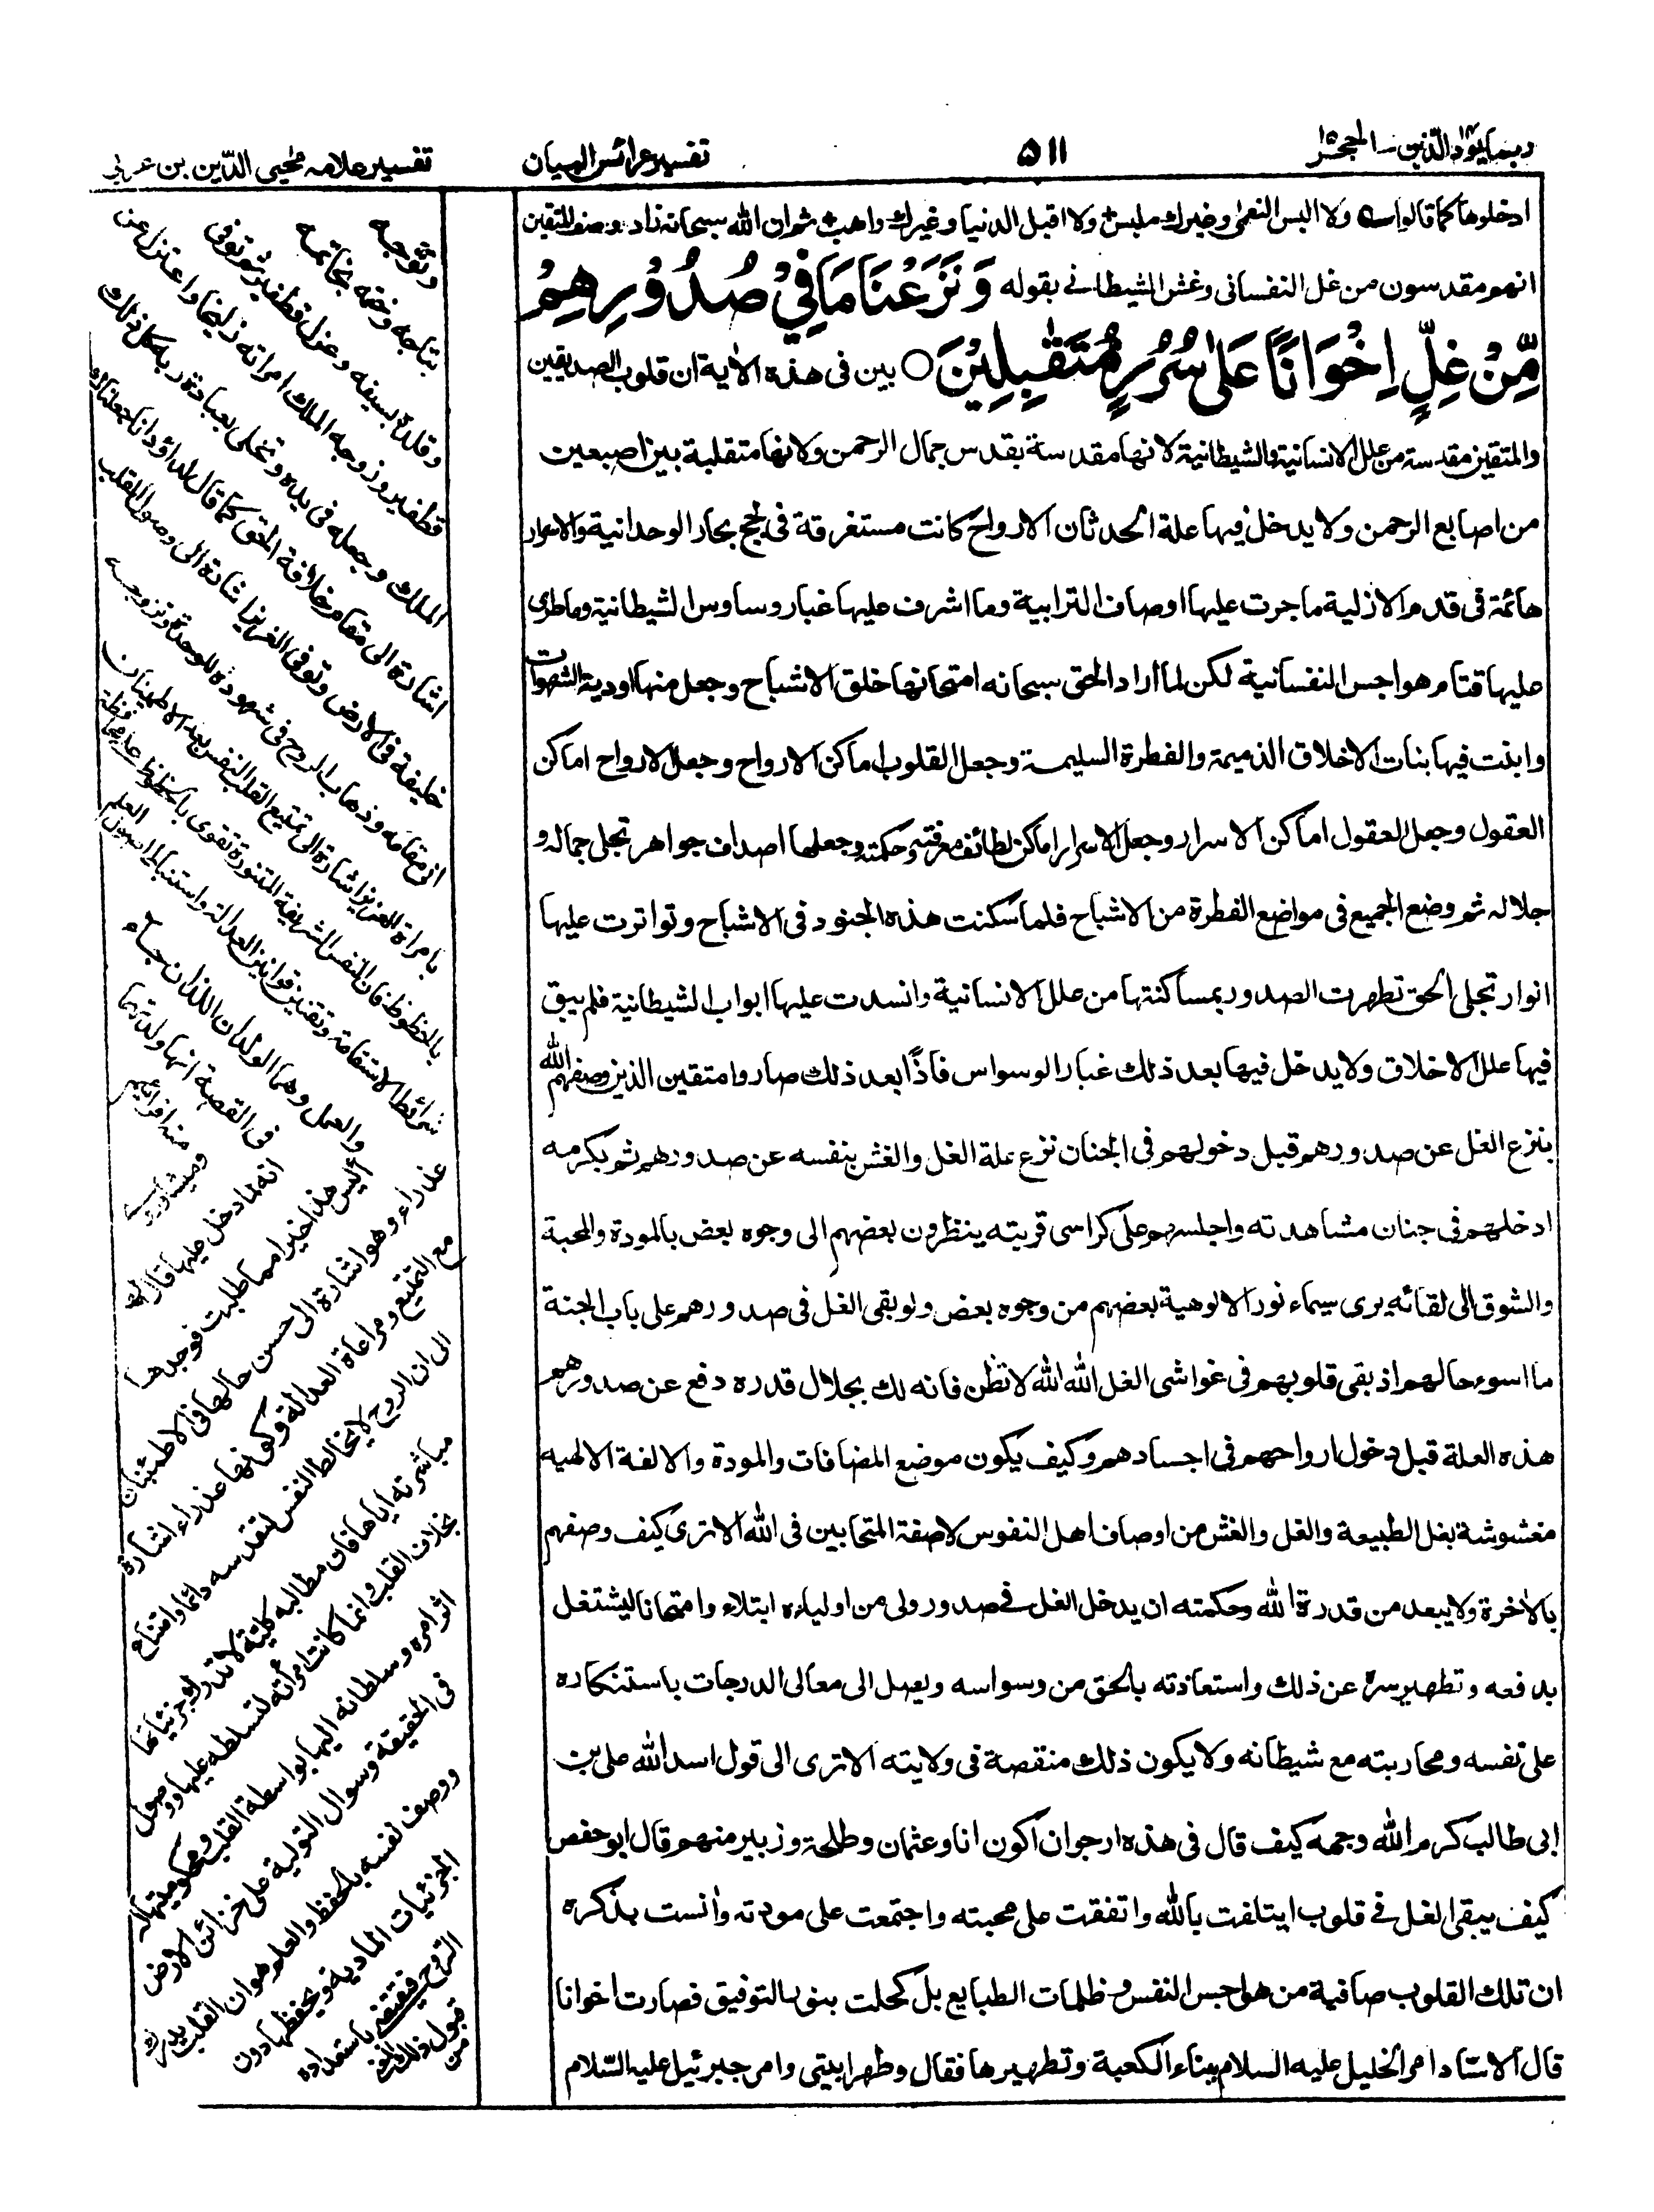 ربما يود الذين ـ الحجر ١٥
٥١١
تفسير عرائس البيان
تفسير علامه محيى الدّين بن عربى
ادخلوها كما قالوا ولا البس النعمى وغيرك ملبس ولا اقبل الدنيا وغيرك واهب ثم ان الله سبحانه زاد وصف المتقين
انهم مقدسون من غل النفسانى وغش الشيطانى بقوله وَنَزَعْنَا مَا فِيْ صُدُوْرِهِمْ
مِّنْ غِلٍّ اِخْوَانًا عَلٰى سُرُرٍ مُّتَقٰبِلِيْنَ ○ بين فى هذه الاٰية ان قلوب الصديقين
والمتقين مقدسة من علل الانسانية والشيطانية لانها مقدسة بقدس جمال الرحمن ولانها متقلبة بين اصبعين
من اصابع الرحمن ولا يدخل فيها علة الحدثان الارواح كانت مستغرقة فى لجج بحار الوحدانية والاسرار
هائمة فى قدم الازلية ما جرت عليها اوصاف الترابية وما اشرف عليها غبار وساوس الشيطانية وما طرى
عليها قتام هواجس النفسانية لكن لما اراد الحق سبحانه امتحانها خلق الاشباح وجعل منها اودية الشهوات
وابنت فيها بنات الاخلاق الذميمة والفطرة السليمة وجعل القلوب اماكن الارواح وجعل الارواح اماكن
العقول وجعل العقول اماكن الاسرار وجعل الاسرار اماكن لطائف معرفته وحكمته وجعلها اصداف جواهر تجلى جماله و
جلاله ثم وضع الجميع فى مواضع الفطرة من الاشباح فلما سكنت هذه الجنود فى الاشباح وتواترت عليها
انوار تجلى الحق تطهرت الصدور بمساكنتها من علل الانسانية وانسدت عليها ابواب الشيطانية فلم يبق
فيها علل الاخلاق ولا يدخل فيها بعد ذلك غبار الوسواس فاذًا بعد ذلك صاروا متقين الذين وصفهم الله
بنزع الغل عن صدورهم قبل دخولهم فى الجنان نزع علة الغل والغش بنفسه عن صدورهم ثم بكرمه
ادخلهم فى جنان مشاهدته واجلسهم على كراسى قربته ينظرون بعضهم الى وجوه بعض بالمودة والمحبة
والشوق الى لقائه يرى سيماء نور الالوهية بعضهم من وجوه بعض ولو بقى الغل فى صدورهم على باب الجنة
ما اسوء حالهم اذ بقى قلوبهم فى غواشى الغل الله الله لا تظن فانه لك بجلال قدره دفع عن صدورهم
هذه العلة قبل دخول ارواحهم فى اجسادهم وكيف يكون موضع المضافات والمودة والالفة الالهيه
مغشوشة بغل الطبيعة والغل والغش من اوصاف اهل النفوس لا صفة المتحابين فى الله الا ترى كيف وصفهم
بالاٰخرة ولا يبعد من قدرة الله وحكمته ان يدخل الغل فى صدور ولى من اولياءه ابتلاء وامتحانا ليشتغل
بدفعه وتطهير سره عن ذلك واستعاذته بالحق من وسواسه ويصل الى معالى الدرجات باستنكاره
على نفسه ومحاربته مع شيطانه ولا يكون ذلك منقصة فى ولايته الا ترى الى قول اسد الله على بن
ابى طالب كرم الله وجهه كيف قال فى هذه ارجو ان اكون انا وعثمان وطلحة وزبير منهم قال ابو حفص
كيف يبقى الغل فى قلوب ايتلفت بالله واتفقت على محبته واجتمعت على مودته وانست بذكره
ان تلك القلوب صافية من هواجس النفس وظلمات الطبايع بل كحلت بنور التوفيق فصارت اخوانا
قال الاستاد امر الخليل عليه السلام ببناء الكعبة وتطهيرها فقال وطهرا بيتى وامر جبرئيل عليه السّلام
وتوجه
بتاجه وختمه بخاتمه
وقلده بسيفه وعزل قطفير ثم توفى
قطفير وزوجه الملك امراته زليخا واعتزل عن
الملك وجعله فى يده وتخلى بعبادة ربه كل ذلك
اشارة الى مقام خلافة الحق كما قال لداؤد انا جعلناك
خليفة فى الارض وتوفى العزيز اشارة الى وصول القلب
الى مقامه وذهاب الروح فى شهوده للوحدة وتزوجه
بامراة العزيز اشارة الى تمتيع القلب النفس بعد الاطمينان
بالحظوظ فان النفس الشريفة المتنورة تقوى بالحظوظ على محافظة
شرائط الاستقامة وتقنين قوانين العدالة واستنباط اصول العلم
والعمل وهما الولدان اللذان جاء
فى القصة انها ولدتهما
منه افرائيم
وميشا وروى
انه لما دخل عليها قال لها
أليس هذا خيرا مما طلبت فوجدها
عذراء وهو اشارة الى حسن حالها فى الاطمئنان
مع التمتيع ومراعاة العدالة وكونها عذراء اشارة
الى ان الروح لا يخالط النفس لتقدسه دائما وامتناع
مباشرته اياها فان مطالبه كلية لا تدرك جزئياتها
بخلاف القلب وانما كانت امرأته لتسلطه عليها ووصول
اثر امره وسلطانه اليها بواسطة القلب ومحكوميتها له
فى الحقيقة وسوال التولية على خزائن الارض
ووصف نفسه بالحفظ والعلم هو ان القلب يدرك
الجزئيات المادية ويحفظها دون
الروح فيقتضى باستعداده
قبول ذلك